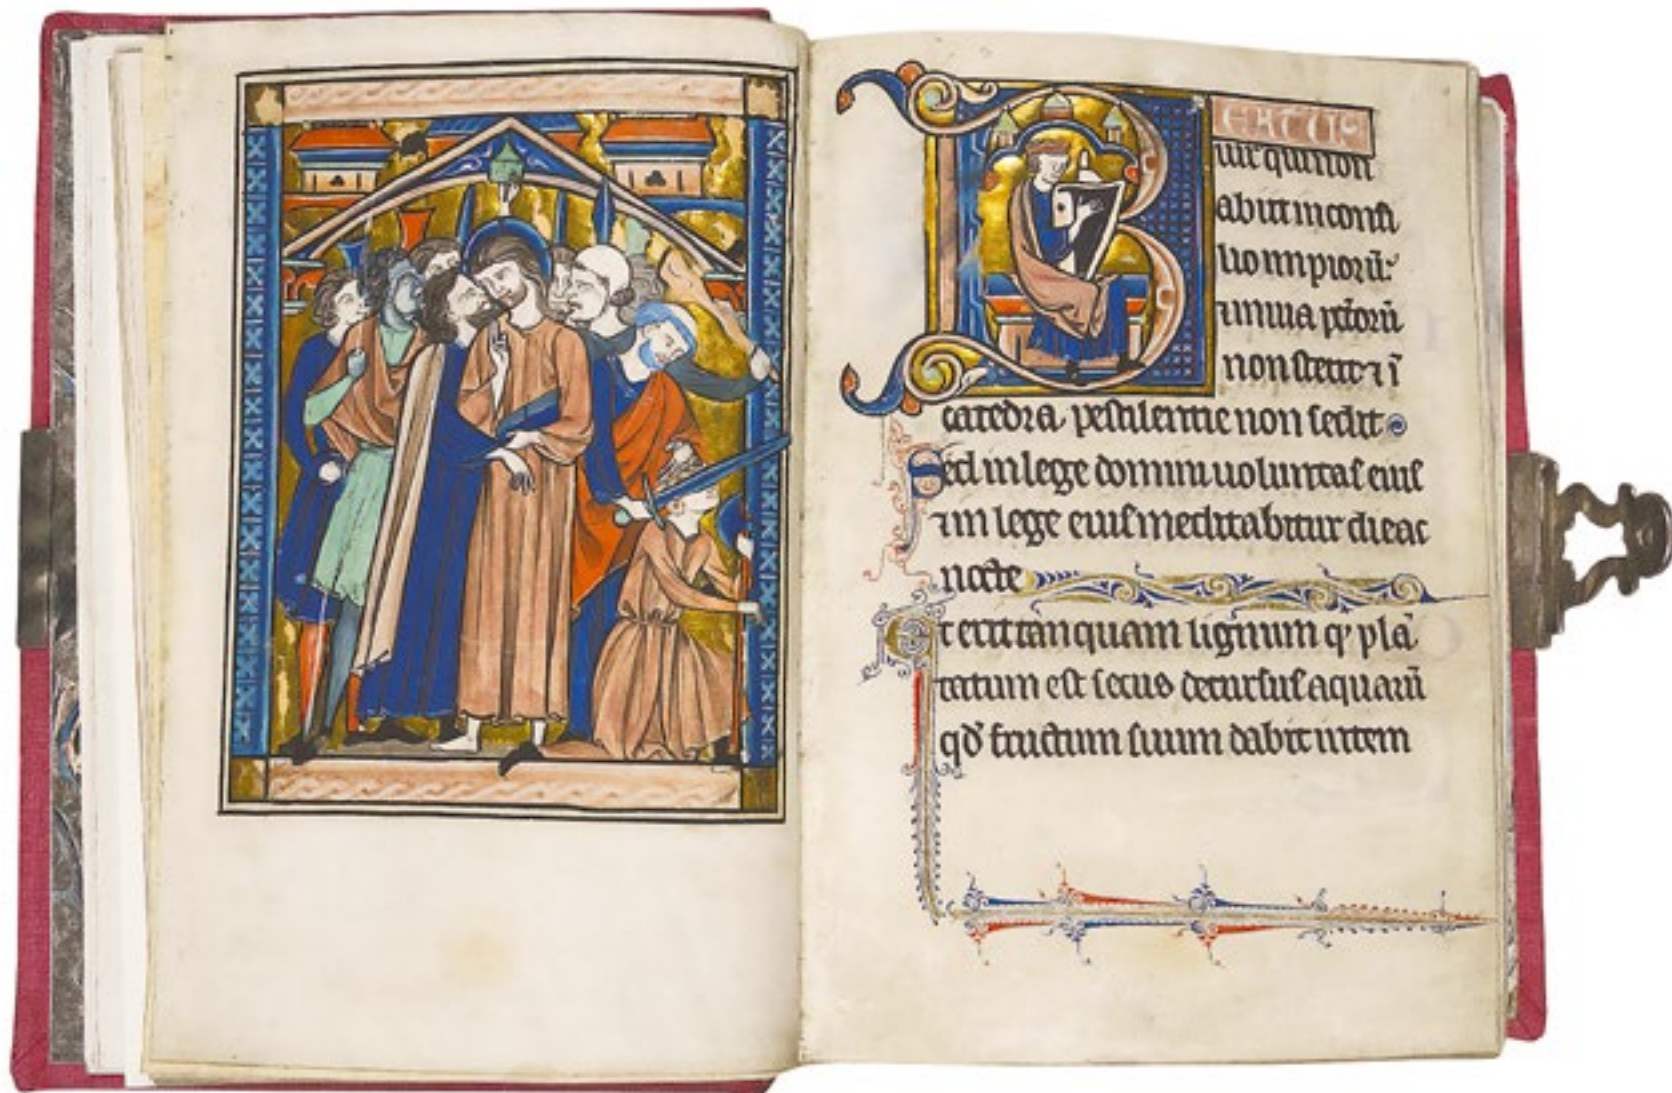 EATUS
uir qui non
abiit in consi
lio impiorū:
⁊ in uia pctorū
non stetit ⁊ ī
catedra pestilentie non sedit
Sed in lege domini uoluntas eius
⁊ in lege eius meditabitur die ac
nocte
Et erit tanquam lignum qͥ plā
tatum est secus decursus aquarū
qd̕ fructum suum dabit in tem